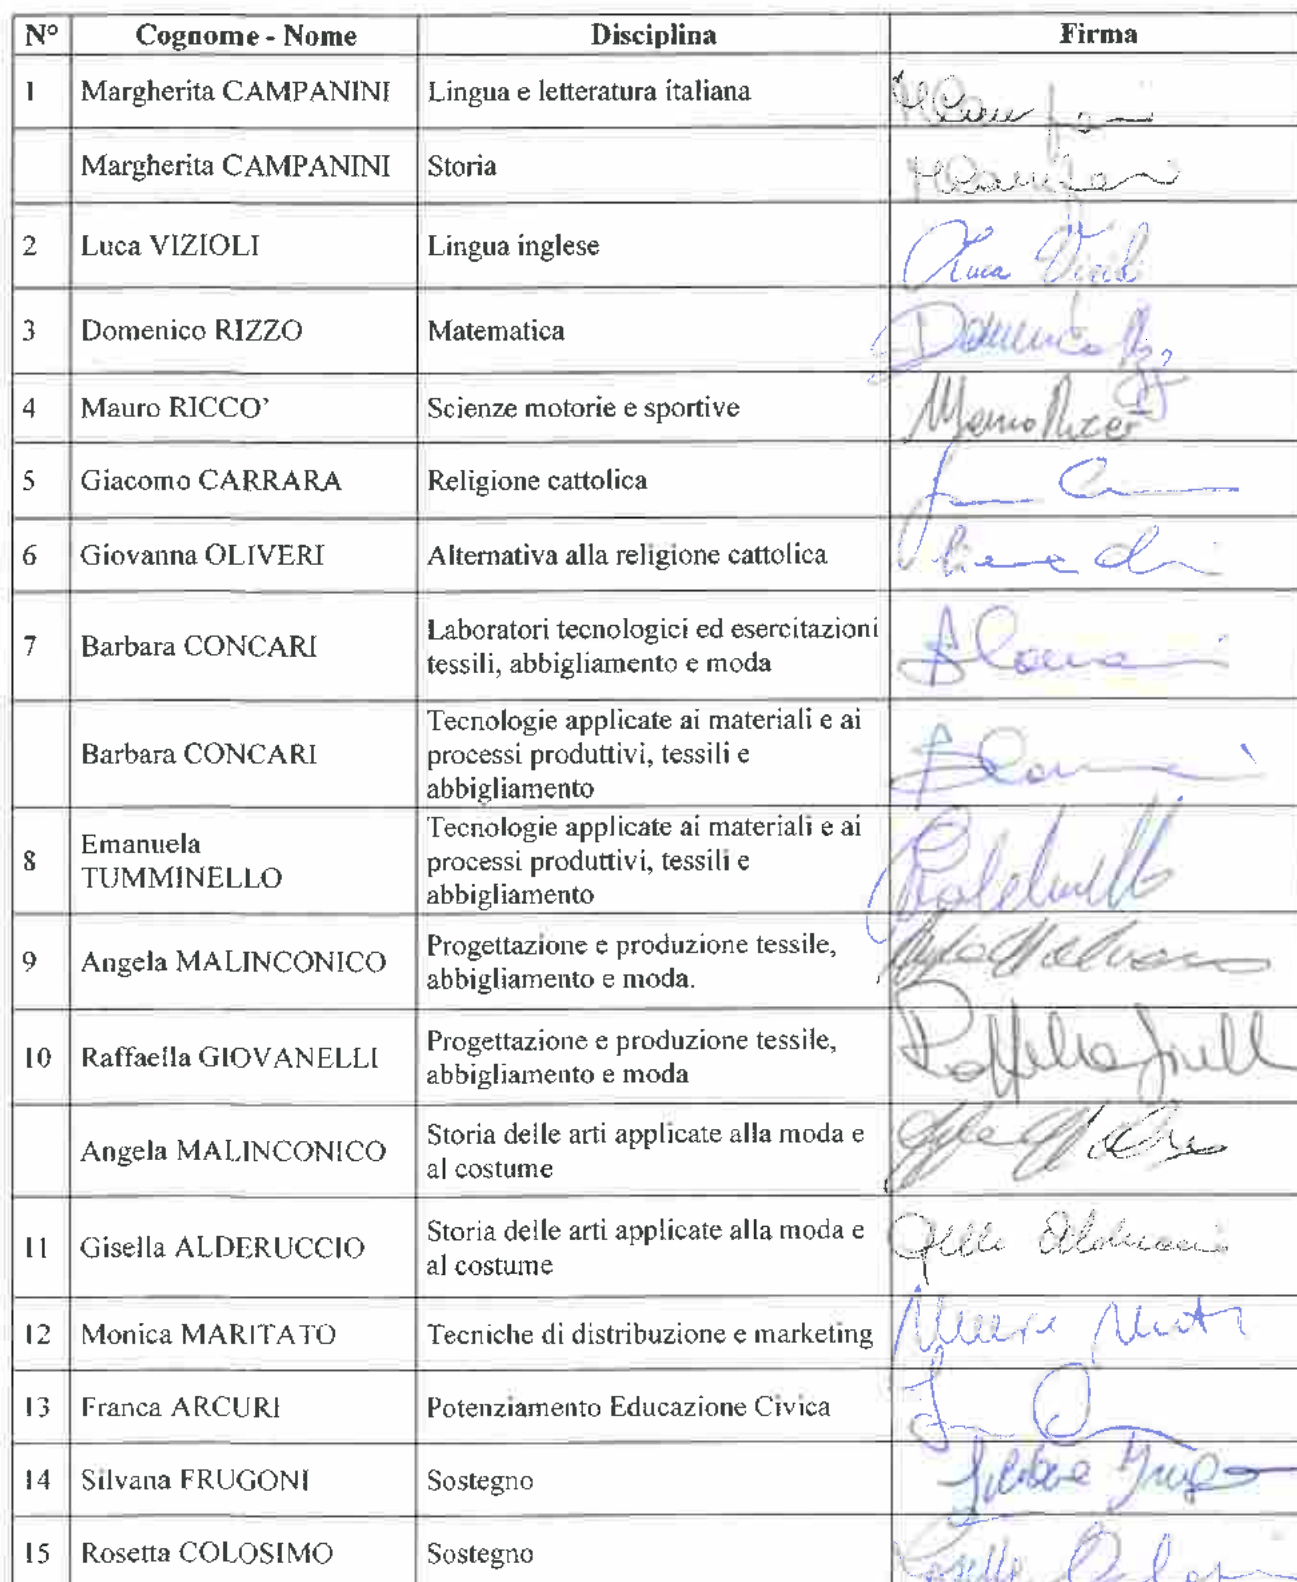 N° Cognome - Nome Disciplina Firma
1 Margherita CAMPANINI Lingua e letteratura italiana
Margherita CAMPANINI Storia
2 Luca VIZIOLI Lingua inglese Luca
3 Domenico RIZZO Matematica Domenico
4 Mauro RICCO’ Scienze motorie e sportive Mauro
5 Giacomo CARRARA Religione cattolica
6 Giovanna OLIVERI Alternativa alla religione cattolica
7 Barbara CONCARI Laboratori tecnologici ed esercitazioni
tessili, abbigliamento e moda
Barbara CONCARI Tecnologie applicate ai materiali e ai
processi produttivi, tessili e
abbigliamento
8 Emanuela
TUMMINELLO Tecnologie applicate ai materiali e ai
processi produttivi, tessili e
abbigliamento
9 Angela MALINCONICO Progettazione e produzione tessile,
abbigliamento e moda.
10 Raffaella GIOVANELLI Progettazione e produzione tessile,
abbigliamento e moda
Angela MALINCONICO Storia delle arti applicate alla moda e
al costume
11 Gisella ALDERUCCIO Storia delle arti applicate alla moda e
al costume
12 Monica MARITATO Tecniche di distribuzione e marketing
13 Franca ARCURI Potenziamento Educazione Civica
14 Silvana FRUGONI Sostegno
15 Rosetta COLOSIMO Sostegno